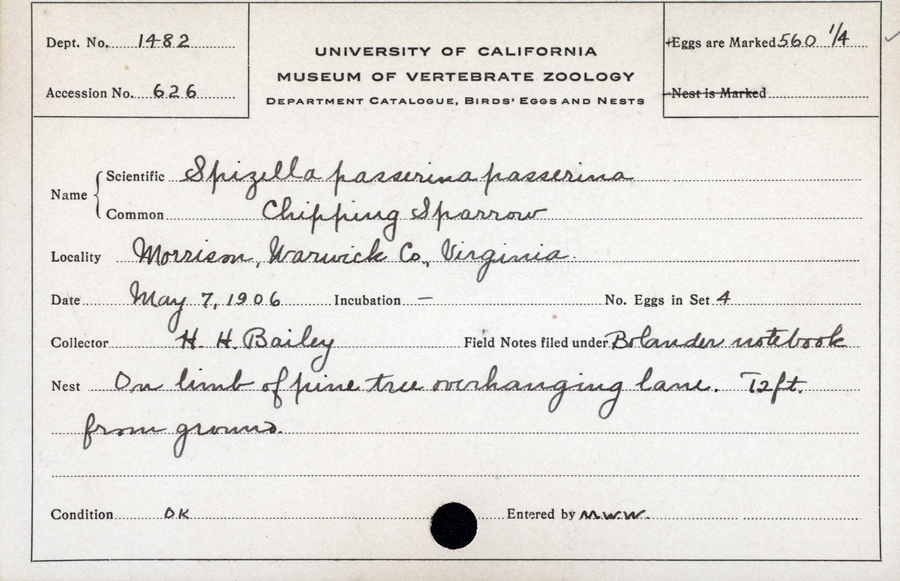 Dept. No. 1482
Accession No. 626
UNIVERSITY OF CALIFORNIA
MUSEUM OF VERTEBRATE ZOOLOGY
DEPARTMENT CATALOGUE, BIRDS' EGGS AND NESTS
Eggs are Marked 560 1/4
Nest is Marked
Name
Scientific Spizella passerina passerina
Common Chipping Sparrow
Locality Morrison, Warwick Co., Virginia.
Date May 7, 1906 Incubation — No. Eggs in Set 4
Collector H. H. Bailey Field Notes filed under Bolander notebook
Nest On limb of pine tree overhanging lane. 12 ft.
from ground.
Condition OK Entered by M.W.W.